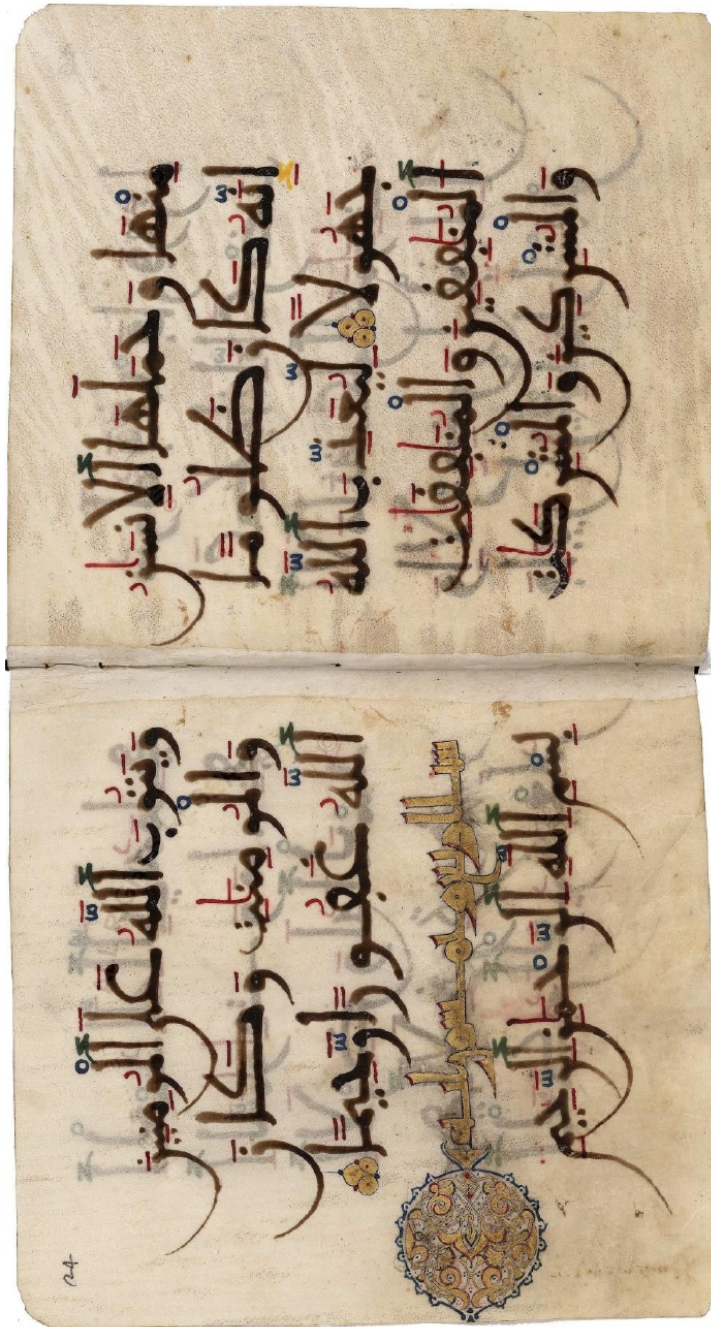 منها وحملها الانسٰن
انه كان ظلوما
جهولا ليعذب الله
المنٰفقين والمنٰفقٰت
والمشركين والمشركٰت
ويتوب الله على المومنين
والمومنٰت وكان
الله غفورا رحيما
بسم الله الرحمٰن الرحيم